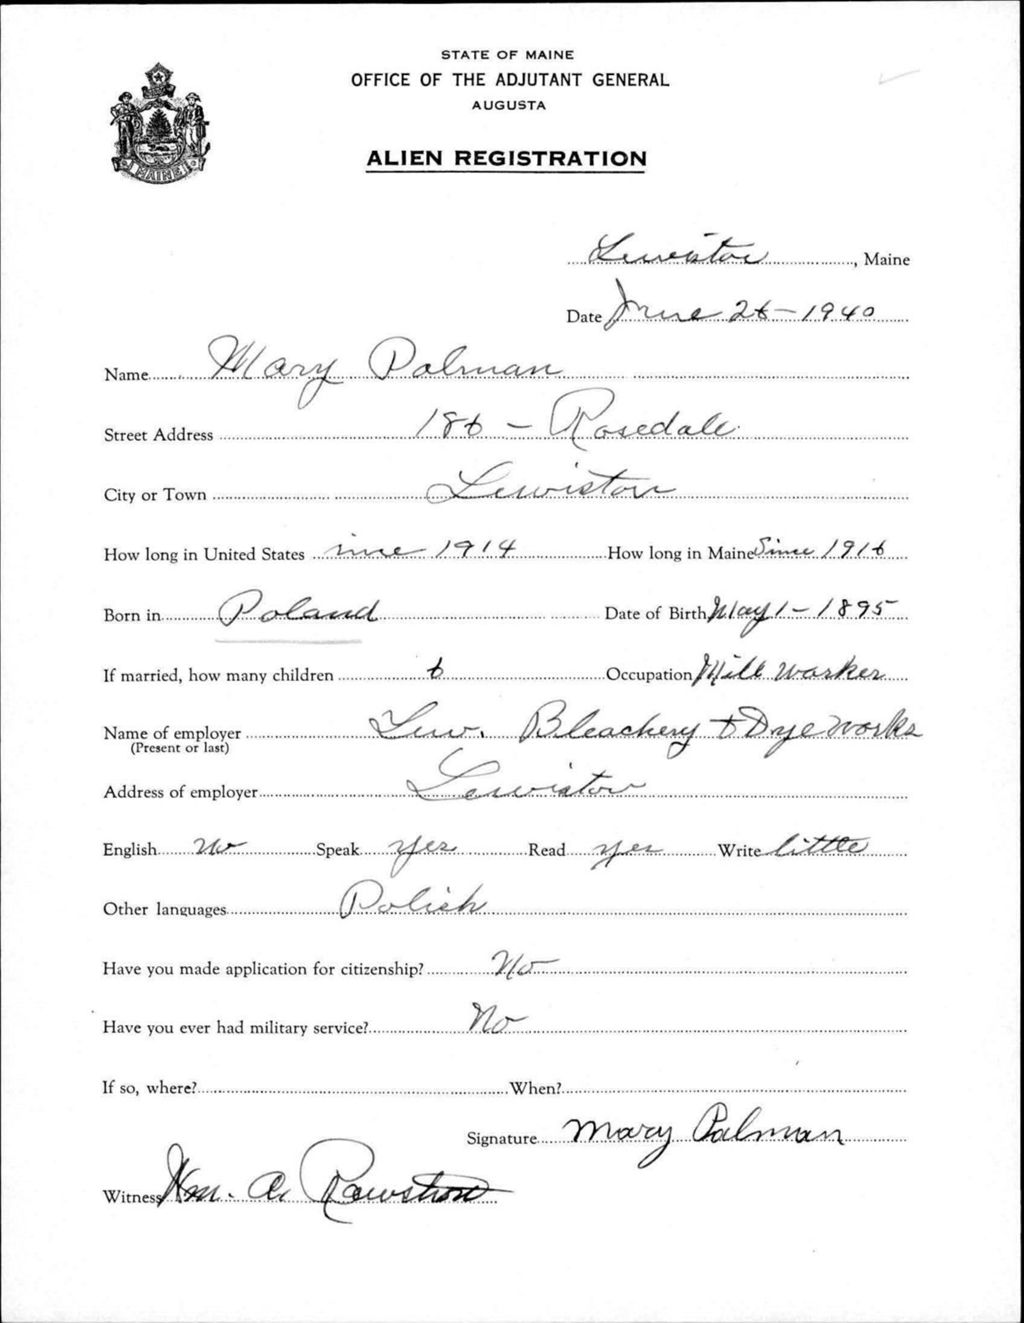 STATE OF MAINE
OFFICE OF THE ADJUTANT GENERAL
AUGUSTA
MAINE
ALIEN REGISTRATION
Lewiston, Maine
Date June 26-1940
Name Mary Palman
Street Address 186 - Rosedale
City or Town Lewiston
How long in United States since 1914 How long in Maine Since 1916
Born in Poland Date of Birth May 1-1895
If married, how many children 6 Occupation Mill worker
Name of employer Lew. Bleachery & Dye works
(Present or last)
Address of employer Lewiston
English No Speak yes Read yes Write little
Other languages Polish
Have you made application for citizenship? No
Have you ever had military service? No
If so, where? When?
Signature Mary Palman
Witness Wm. A. Rawstron